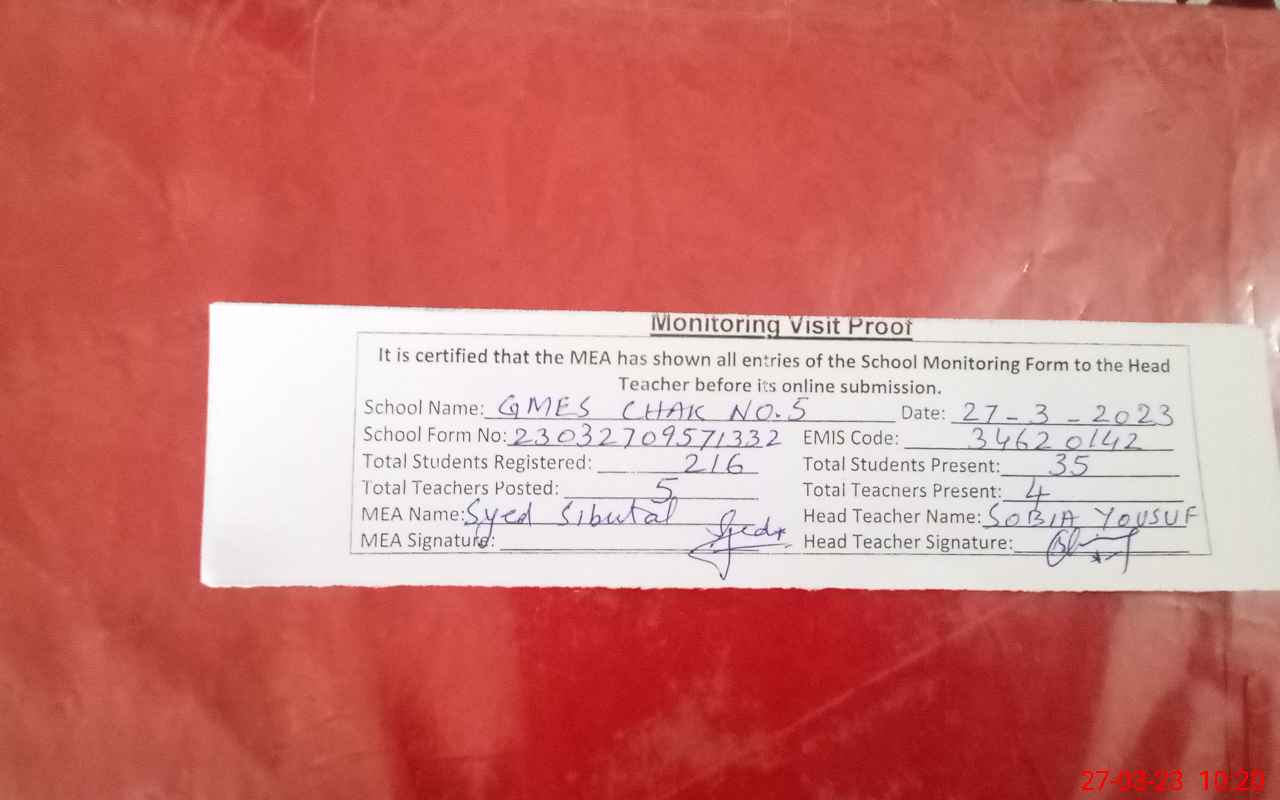 Monitoring Visit Proof
It is certified that the MEA has shown all entries of the School Monitoring Form to the Head
Teacher before its online submission.
School Name: GMES CHAK NO.5 Date: 27-3-2023
School Form No: 23032709571332 EMIS Code: 34620142
Total Students Registered: 216 Total Students Present: 35
Total Teachers Posted: 5 Total Teachers Present: 4
MEA Name: Syed Sibutal Head Teacher Name: SOBIA YOUSUF
MEA Signature: Head Teacher Signature:
27-03-23 10:20